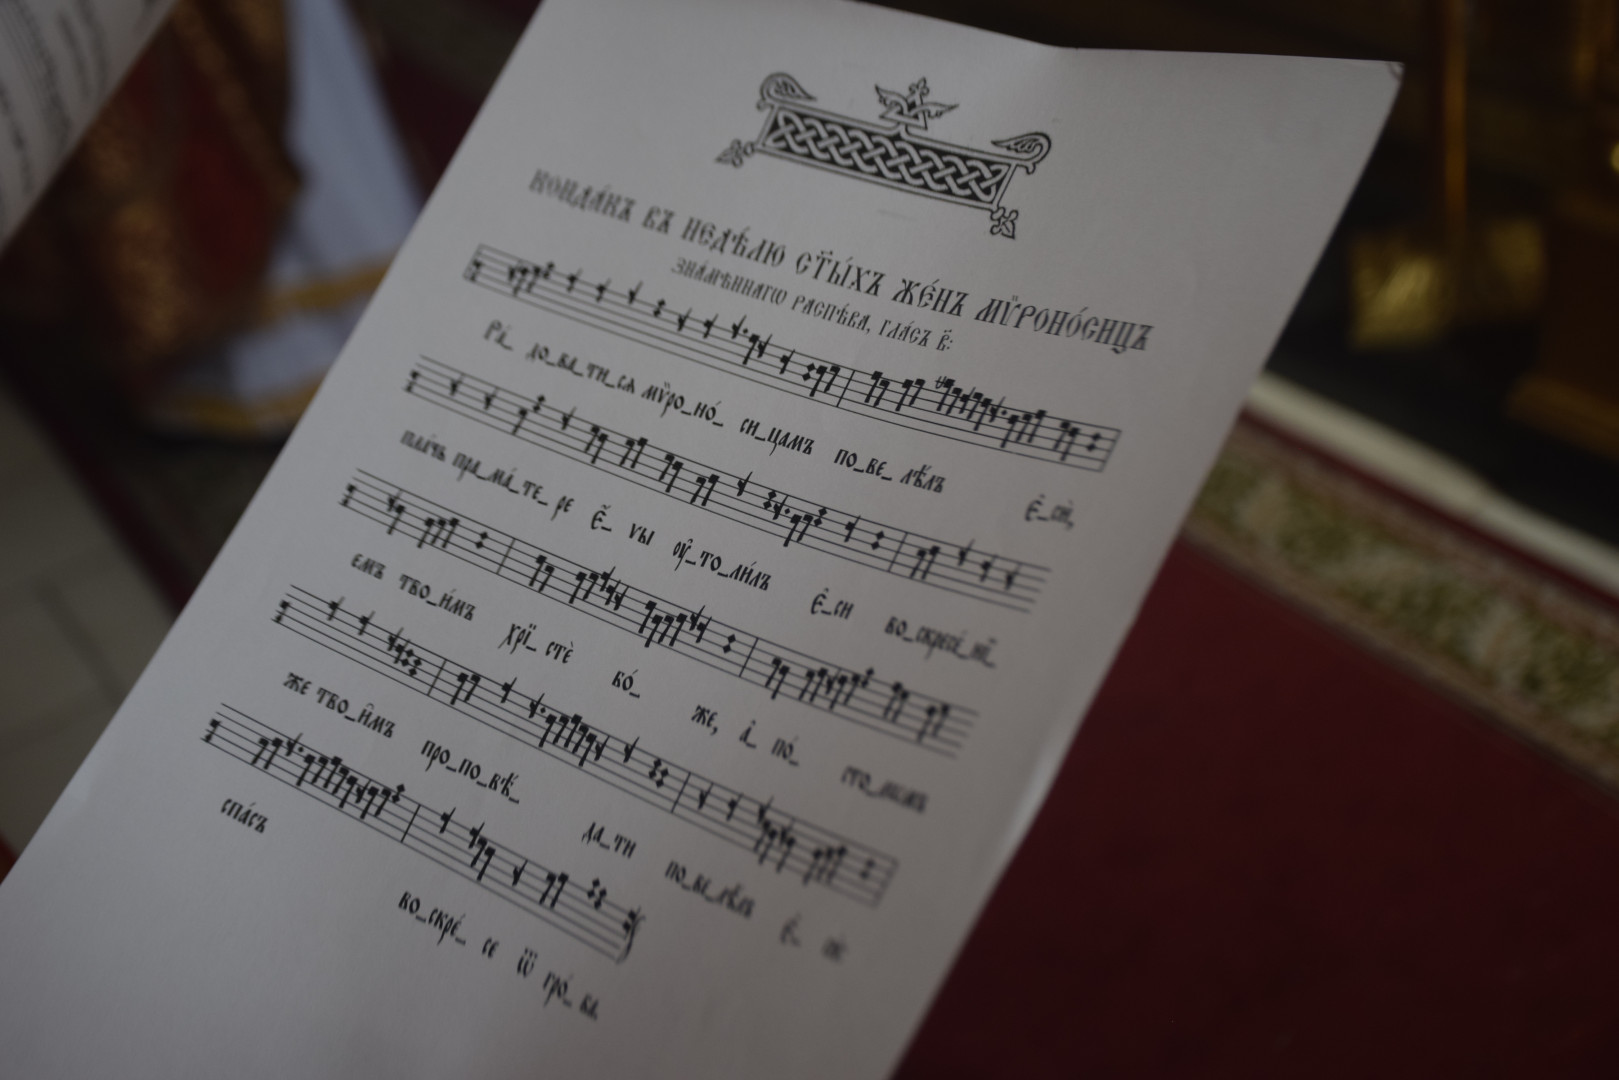 КОНДА́КЪ ВЪ НЕДѢ́ЛЮ СТ҃Ы́ХЪ ЖЕ́НЪ МѴ̈РОНО́СИЦЪ
ЗНА́МЕННАГѠ РАСПѢ́ВА, ГЛА́СЪ В҃:
Ра́_ до_ва_ти_сѧ мѵ̈ро_но́_ си_цамъ по_ве_ лѣ́лъ є҆_сѝ,
пла́чь пра_ма́_те_ ре є҆́_ ѵы ᲂу҆_то_ли́лъ є҆_си во_скресе́_нї_
емъ тво_и́мъ хрⷭ҇_ стѐ бо́_ же, а҆_ по́_ сто_лѡмъ
же тво_и̑мъ про_по_вѣ́_ да_ти по_ве_лѣ́лъ є҆_ сѝ:
спа́съ во_скре́_ се ѿ гро́_ ба.